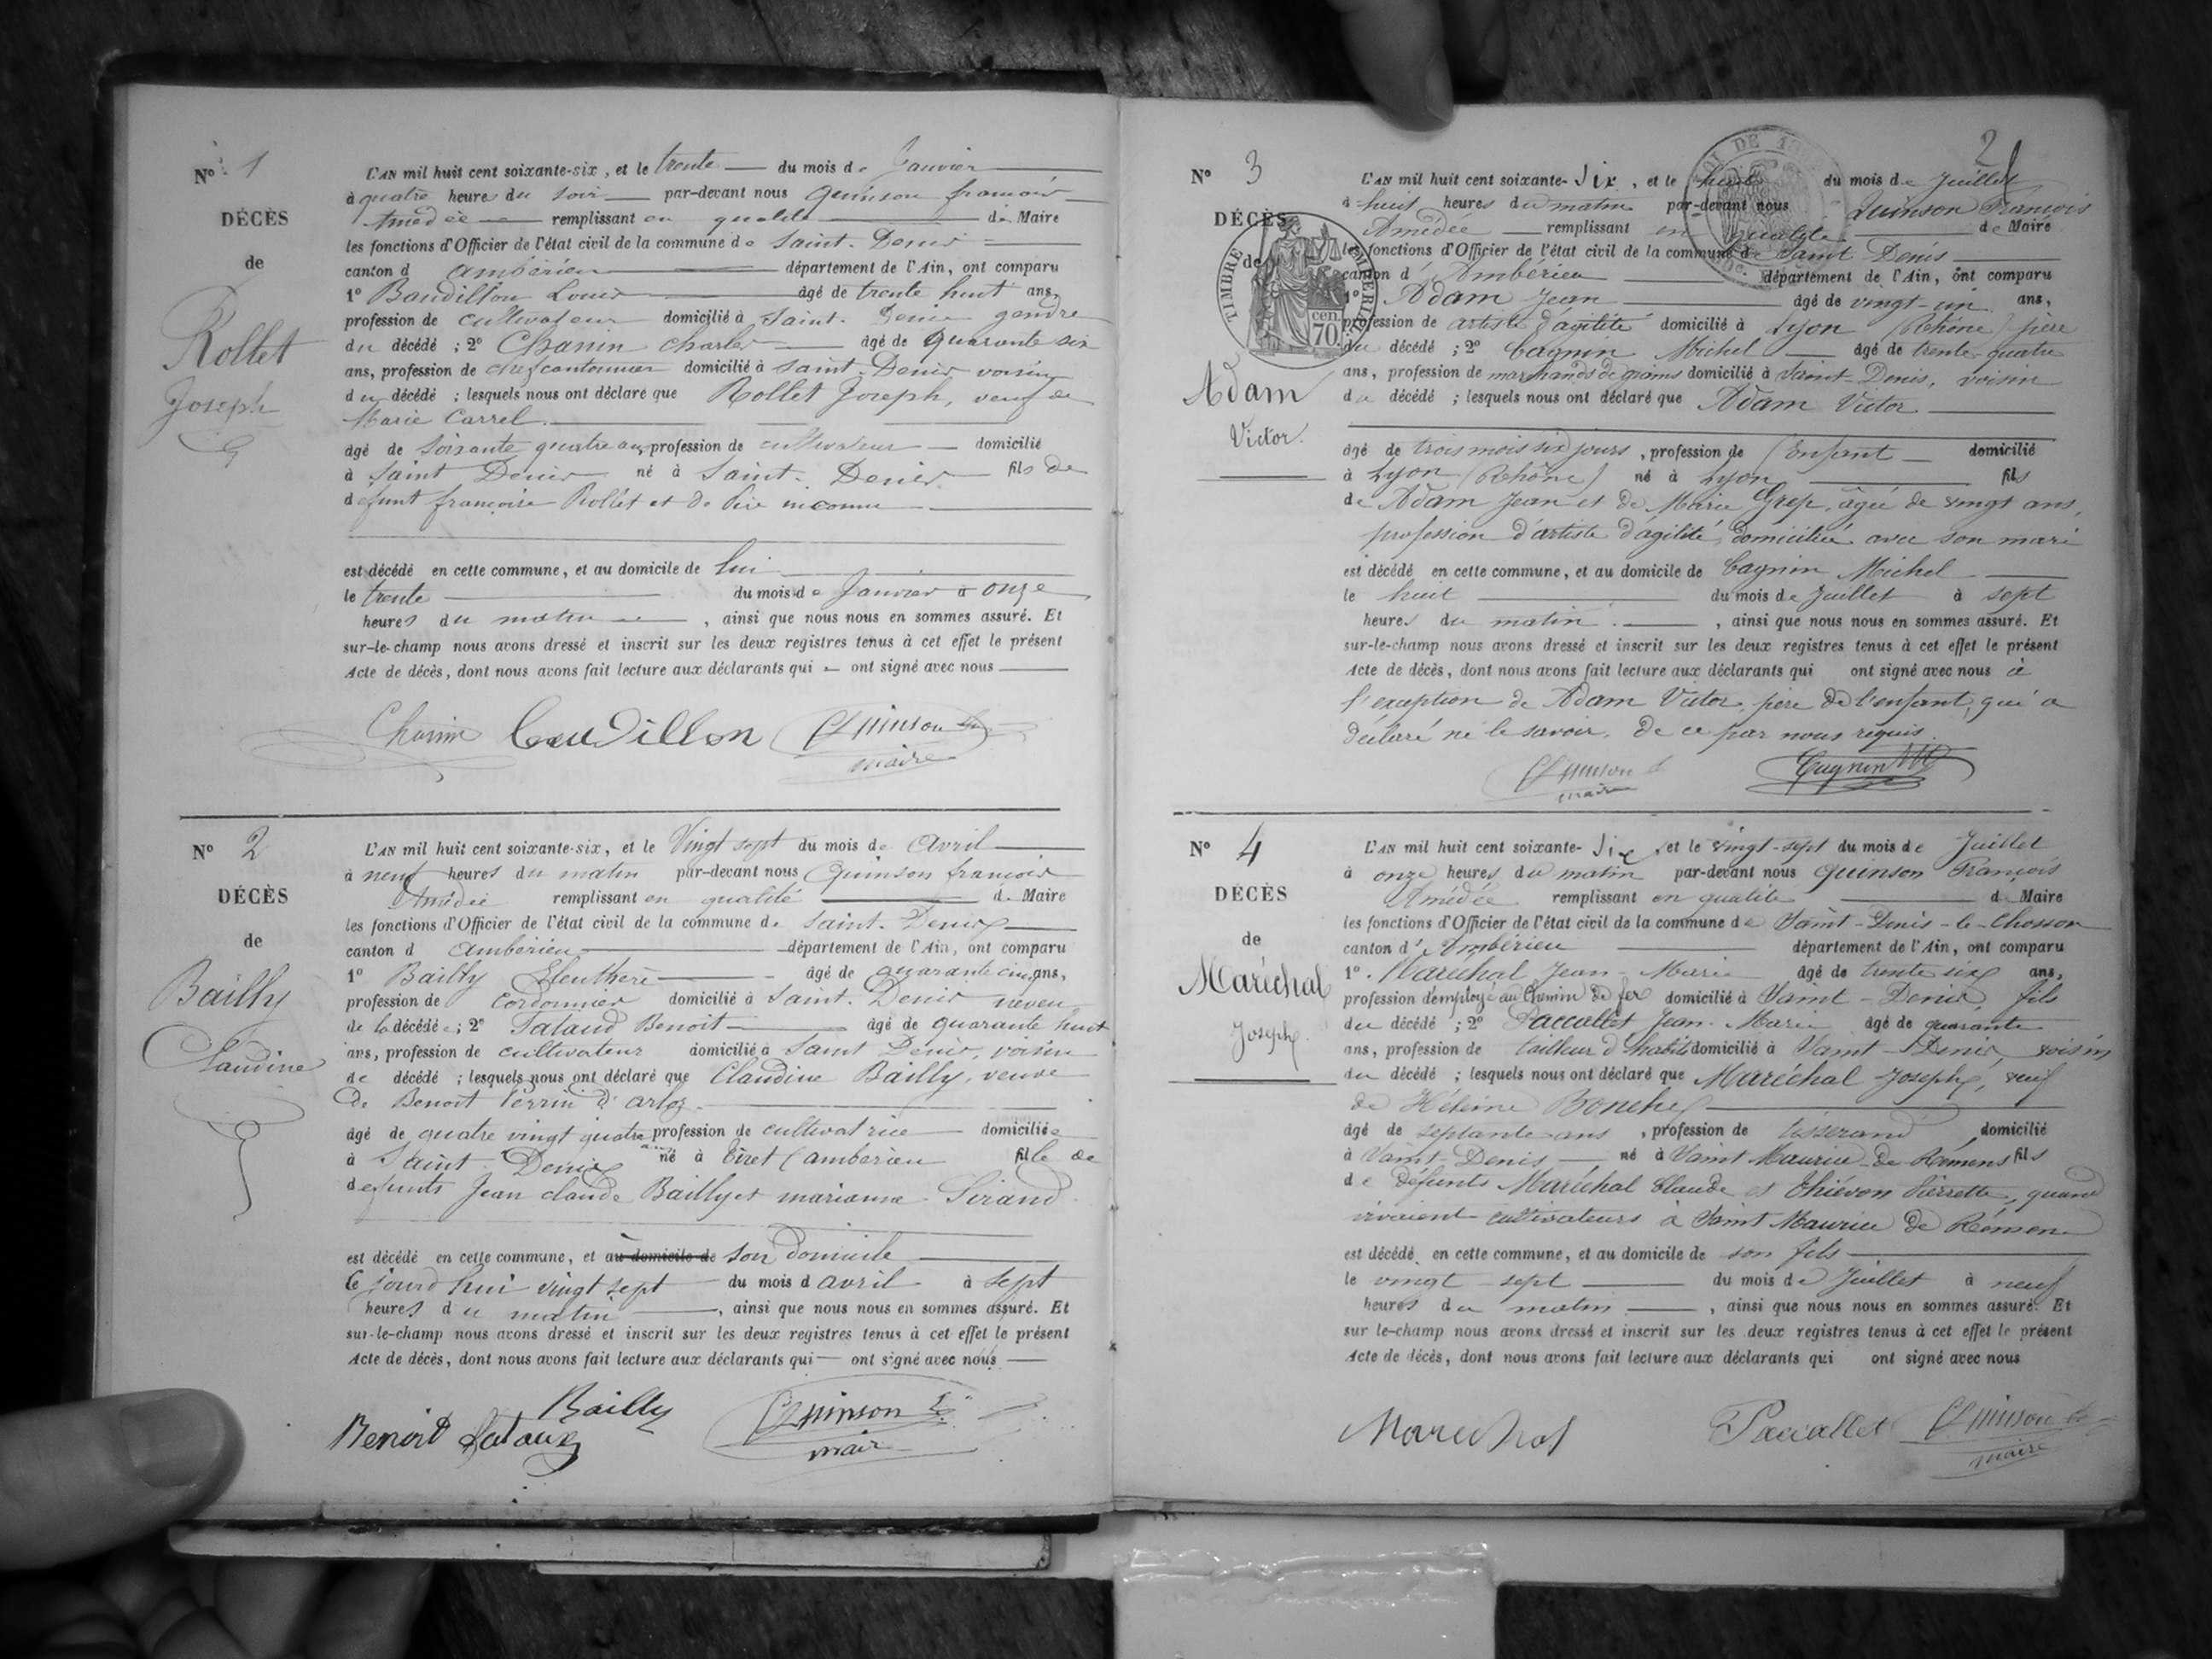 N° 1
DÉCÈS
de
Rollet
Joseph
L'AN mil huit cent soixante-six, et le trente du mois de Janvier
à quatre heures du soir par-devant nous Quinson françois
Amédée remplissant en qualité de Maire
les fonctions d'Officier de l'état civil de la commune de Saint-Denis
canton d ambérieu département de l'Ain, ont comparu
1° Baudillon Louis âgé de trente huit ans,
profession de cultivateur domicilié à Saint-Denis gendre
du décédé ; 2° Chanin Charles âgé de quarante six
ans, profession de chef cantonnier domicilié à Saint-Denis voisin
du décédé ; lesquels nous ont déclaré que Rollet Joseph, veuf de
Marie Carrel
âgé de soixante quatre ans, profession de cultivateur domicilié
à Saint Denis né à Saint-Denis fils de
défunt françoise Rollet et de père inconnu
est décédé en cette commune, et au domicile de lui
le trente du mois de Janvier à onze
heures du matin, ainsi que nous nous en sommes assuré. Et
sur-le-champ nous avons dressé et inscrit sur les deux registres tenus à cet effet le présent
Acte de décès, dont nous avons fait lecture aux déclarants qui ont signé avec nous
Chanin Baudillon Quinson
maire
N° 2
DÉCÈS
de
Bailly
Claudine
L'AN mil huit cent soixante-six, et le Vingt sept du mois de Avril
à neuf heures du matin par-devant nous Quinson françois
Amédée remplissant en qualité de Maire
les fonctions d'Officier de l'état civil de la commune de Saint-Denis
canton d ambérieu département de l'Ain, ont comparu
1° Bailly Eleuthère âgé de quarante cinq ans,
profession de cordonnier domicilié à Saint-Denis neveu
de la décédée ; 2° Jataud Benoit âgé de quarante huit
ans, profession de cultivateur domicilié à Saint Denis, voisin
de décédé ; lesquels nous ont déclaré que Claudine Bailly, veuve
de Benoit Perrin d'
âgé de quatre vingt quatre ans profession de cultivatrice domiciliée
à Saint-Denis né à Tiret (ambérieu fille de
défunts Jean claude Bailly et marianne Sirand
est décédé en cette commune, et au domicile de son domicile
Ce jourd'hui vingt sept du mois d avril à sept
heures du matin, ainsi que nous nous en sommes assuré. Et
sur-le-champ nous avons dressé et inscrit sur les deux registres tenus à cet effet le présent
Acte de décès, dont nous avons fait lecture aux déclarants qui ont signé avec nous
Bailly Quinson
Benoit Jataud
mair
2
N° 3
DÉCÈS
de
TIMBRE IMPÉRIAL
70 cen.
Adam
Victor.
L'AN mil huit cent soixante-Six, et le huit du mois de Juillet
à huit heures du matin par-devant nous Quinson François
Amédée remplissant en qualité de Maire
les fonctions d'Officier de l'état civil de la commune de Saint Denis
canton d'Ambérieu département de l'Ain, ont comparu
1° Adam Jean âgé de vingt-un ans,
profession de artiste d'agilité domicilié à Lyon (Rhône) père
du décédé ; 2° Cagnin Michel âgé de trente-quatre
ans, profession de marchands de grains domicilié à Saint-Denis, voisin
du décédé ; lesquels nous ont déclaré que Adam Victor
âgé de trois mois six jours, profession de (Enfant domicilié
à Lyon (Rhône) né à Lyon fils
de Adam Jean et de Marie Grep, âgée de vingt ans,
profession d'artiste d'agilité, domiciliée avec son mari
est décédé en cette commune, et au domicile de Cagnin Michel
le huit du mois de Juillet à sept
heures du matin, ainsi que nous nous en sommes assuré. Et
sur-le-champ nous avons dressé et inscrit sur les deux registres tenus à cet effet le présent
Acte de décès, dont nous avons fait lecture aux déclarants qui ont signé avec nous à
l'exception de Adam Victor, père de l'enfant, qui a
déclaré ne le savoir, de ce par nous requis.
Quinson Cagnin
maire
N° 4
DÉCÈS
de
Maréchal
Joseph
L'AN mil huit cent soixante-Six, et le vingt-sept du mois de Juillet
à onze heures du matin par-devant nous Quinson François
Amédée remplissant en qualité de Maire
les fonctions d'Officier de l'état civil de la commune de Saint-Denis-le-Chosson
canton d'Ambérieu département de l'Ain, ont comparu
1° Maréchal Jean-Marie âgé de trente six ans,
profession d'employé au Chemin de fer domicilié à Saint-Denis fils
du décédé ; 2° Paccallet Jean-Marie âgé de quarante
ans, profession de tailleur d'habits domicilié à Saint-Denis, voisin
du décédé ; lesquels nous ont déclaré que Maréchal Joseph, veuf
de Hélène
âgé de septante ans, profession de tisserand domicilié
à Saint-Denis né à Saint Maurice-de Rémens fils
de défunts Maréchal Claude et Thiévon Pierrette, quand
vivaient cultivateurs à Saint Maurice de Rémens
est décédé en cette commune, et au domicile de son fils
le vingt-sept du mois de Juillet à neuf
heures du matin, ainsi que nous nous en sommes assuré. Et
sur le-champ nous avons dressé et inscrit sur les deux registres tenus à cet effet le présent
Acte de décès, dont nous avons fait lecture aux déclarants qui ont signé avec nous
Marechal Paccallet Quinson
maire